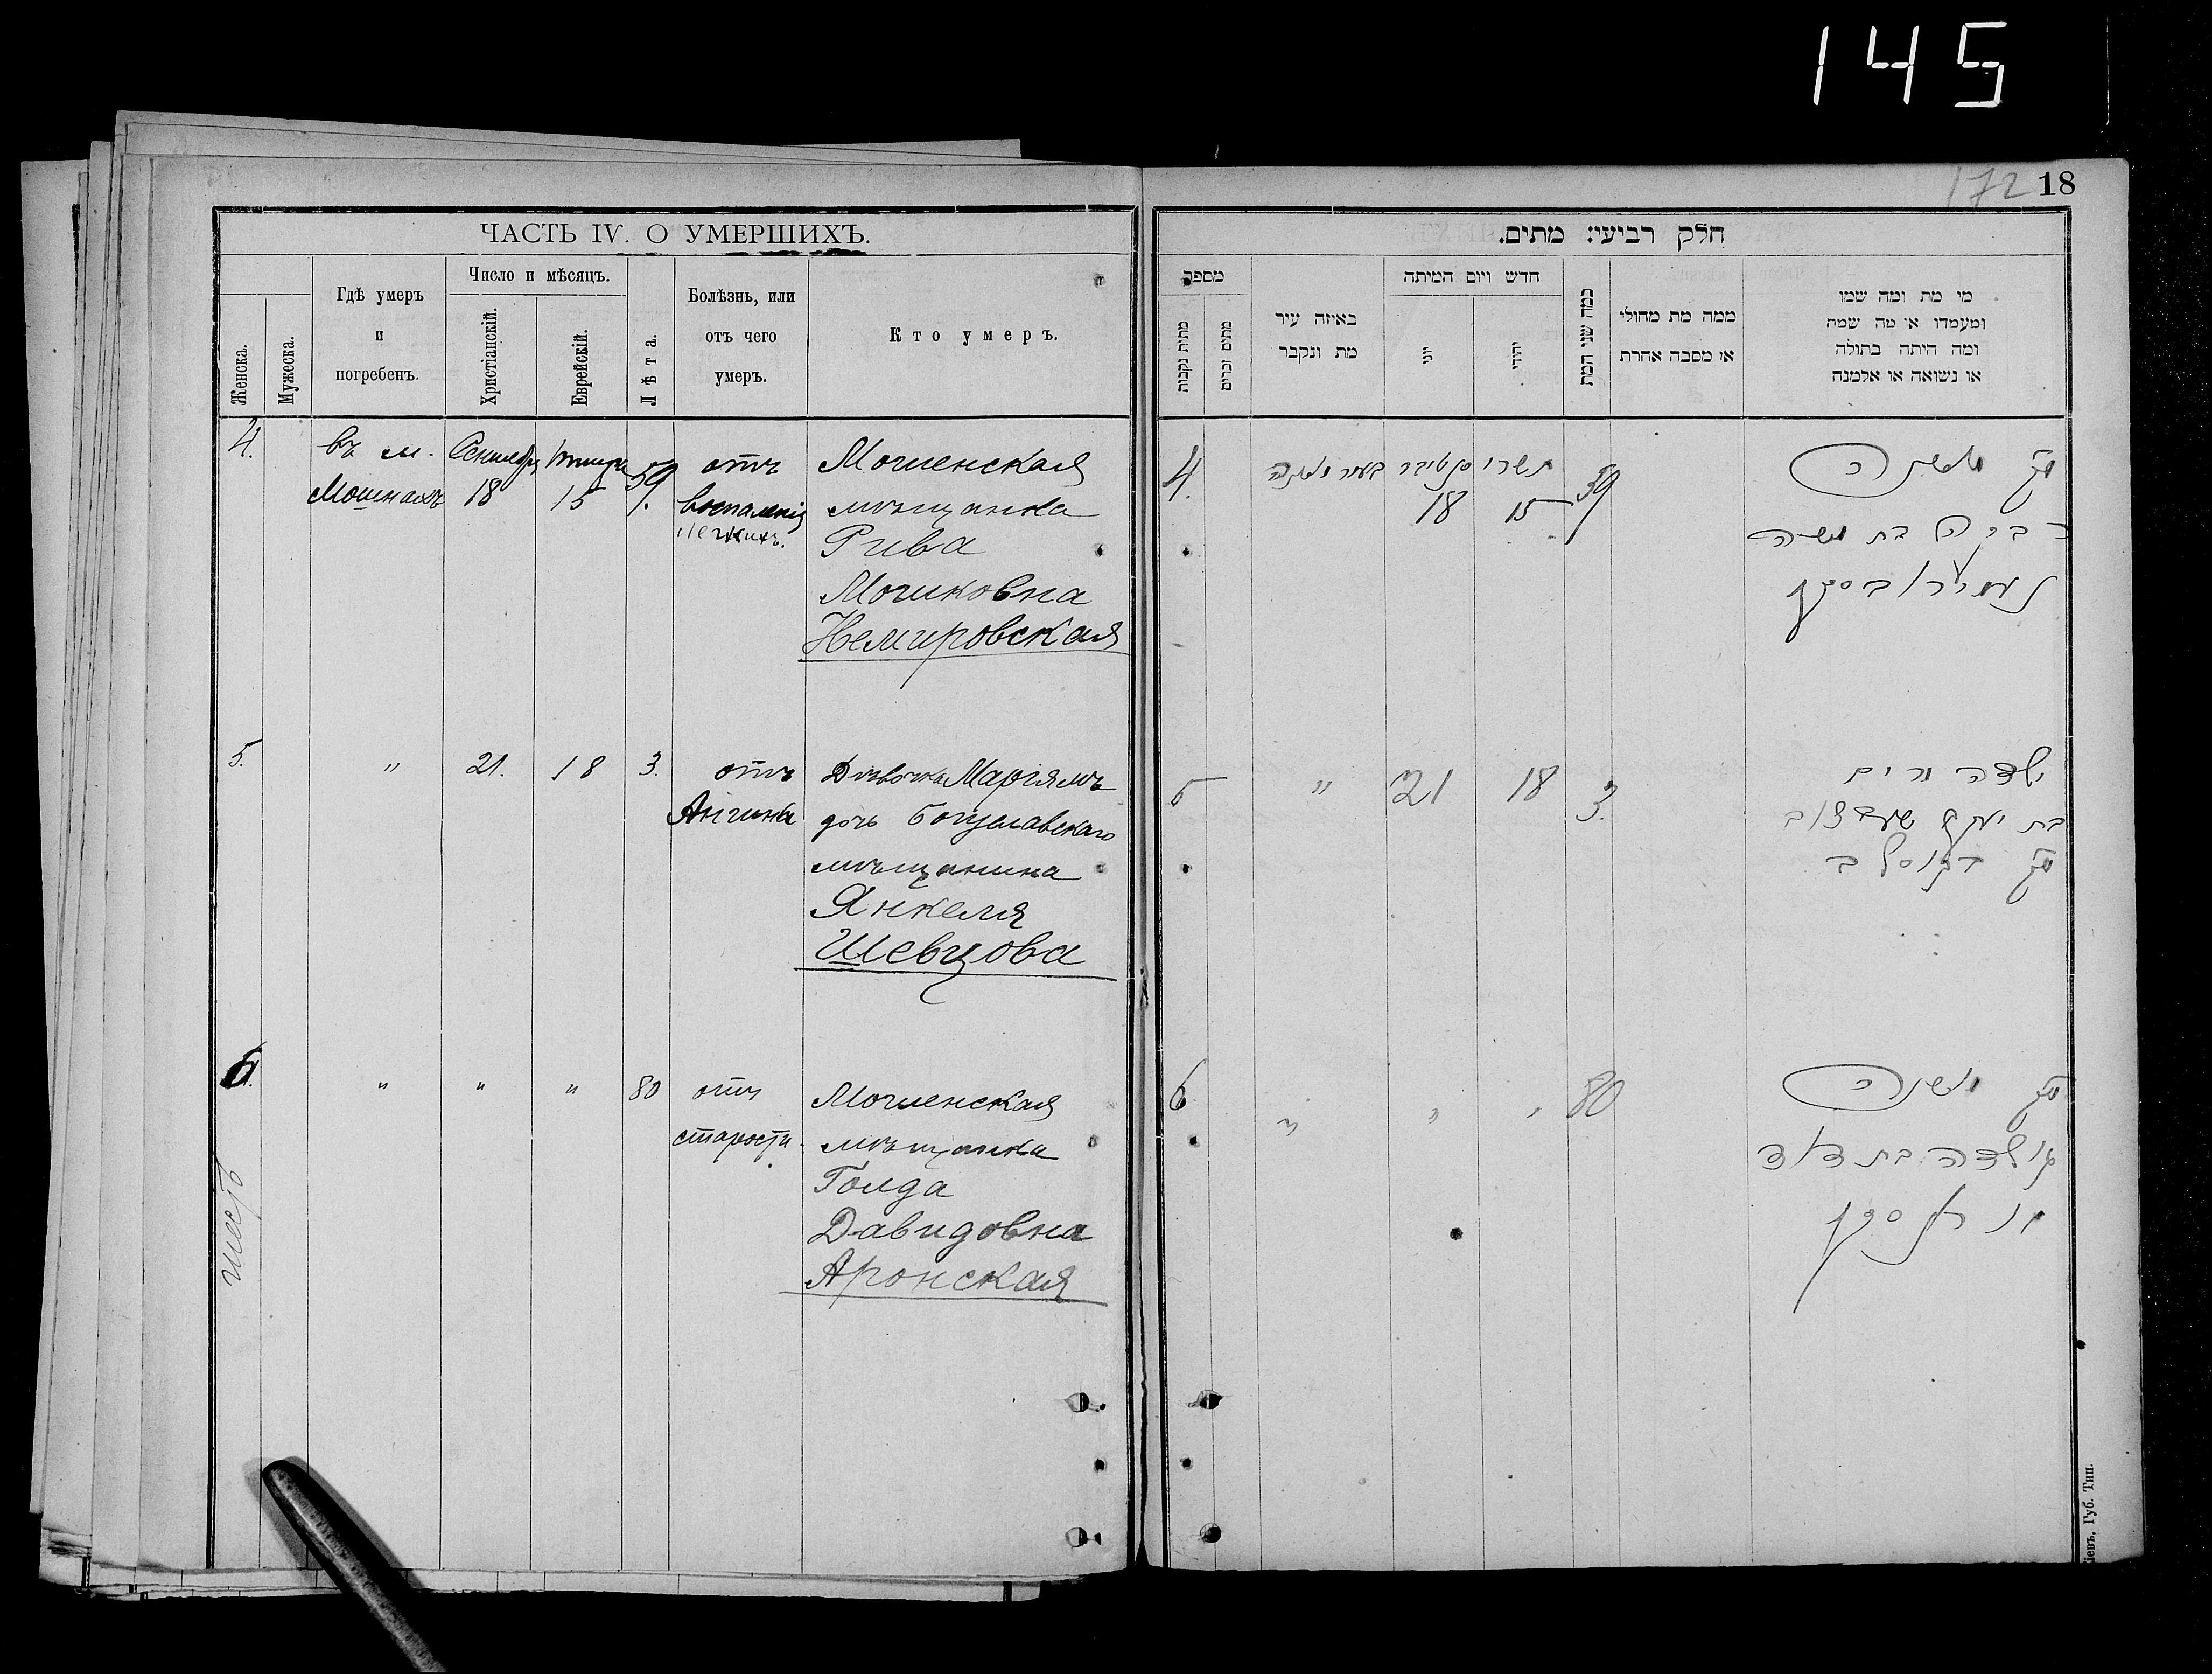 145
172 18
ЧАСТЬ IV. О УМЕРШИХЪ.
Женска.
Мужеска.
Гдѣ умеръ
и
погребенъ.
Число и мѣсяцъ.
Христіанскій.
Еврейскій.
Лѣта.
Болѣзнь, или
отъ чего
умеръ.
Кто умеръ.
4.
въ м.
Мошнахъ
Сентябр
18
тишри
15
59
отъ
воспаленія
легкихъ.
Мошенская
мѣщанка
Рива
Мошковна
Немировская
5.
"
21.
18
3.
отъ
Ангина
Дѣвочка Маріямъ
дочь Богуславскаго
мѣщанина
Янкеля
Шевцова
6.
"
"
"
80
отъ
старости.
Мошенская
мѣщанка
Голда
Давидовна
Аронская
шесть
חלק רביעי: מתים.
מספר
מתות נקבות
מתים זכרים
באיזה עיר
מת ונקבר
חדש ויום המיתה
יוני
יהודי
כמה שני המת
ממה מת מחולי
או מסבה אחרת
מי מת ומה שמו
ומעמדו או מה שמה
ומה היתה בתולה
או נשואה או אלמנה
4.
18
תשרי
15
59
בת משה
5
"
21
18
3.
ילדה מרים
בת יעקב
6
"
"
"
80
גולדה בת דוד
Кіевъ, Губ. Тип.